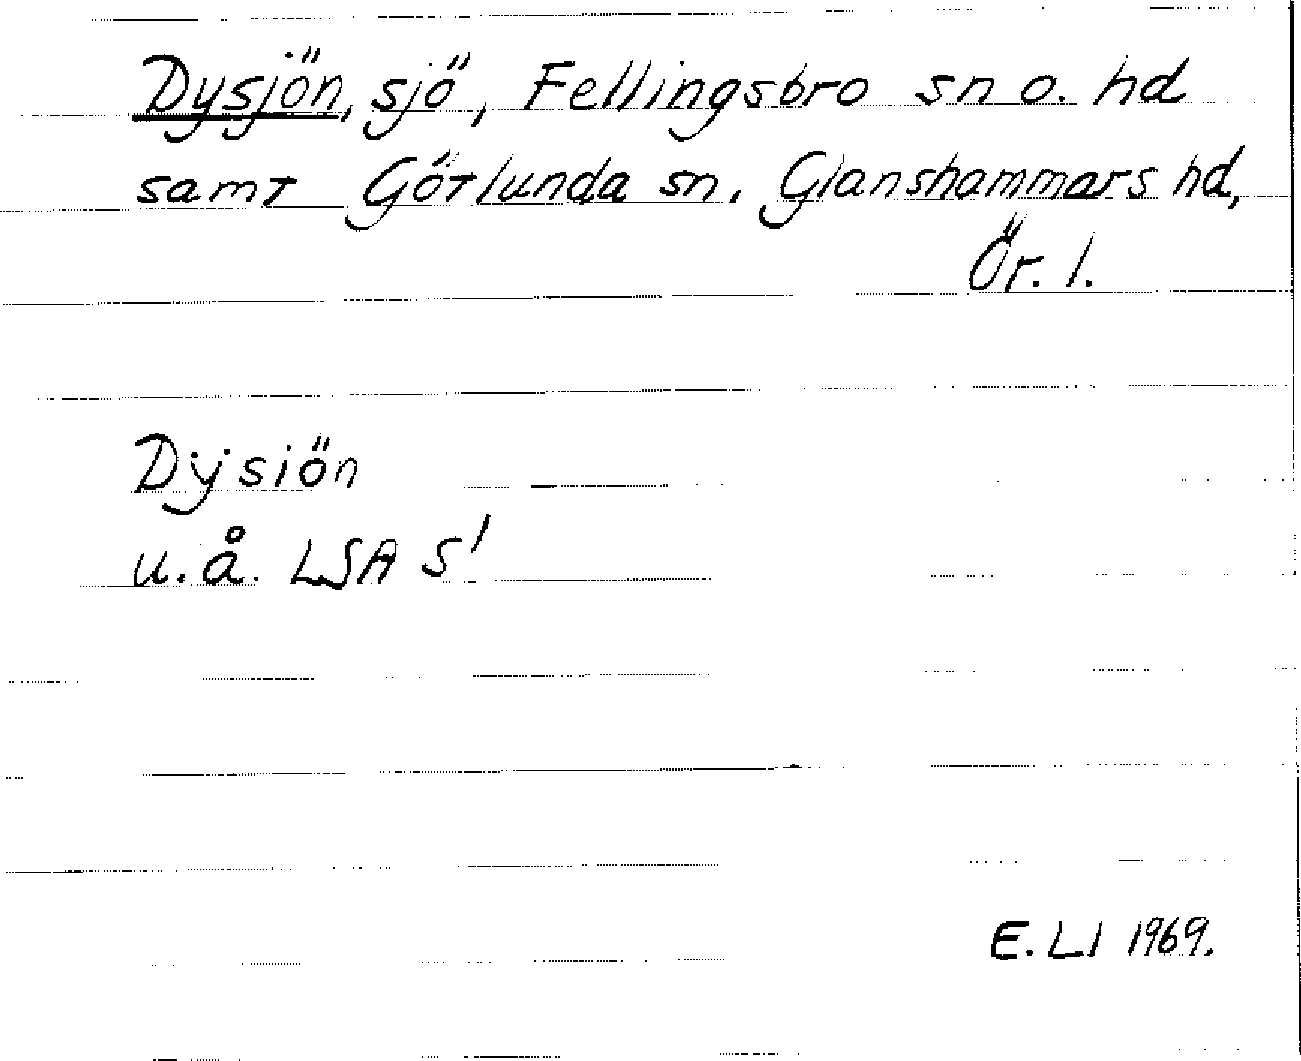 Dysjön, sjö, Fellingsbro sn o. hd
samt Götlunda sn, Glanshammars hd,
Ör. l.
Dÿsiön
u.å. LSA S1
E. LI 1969.